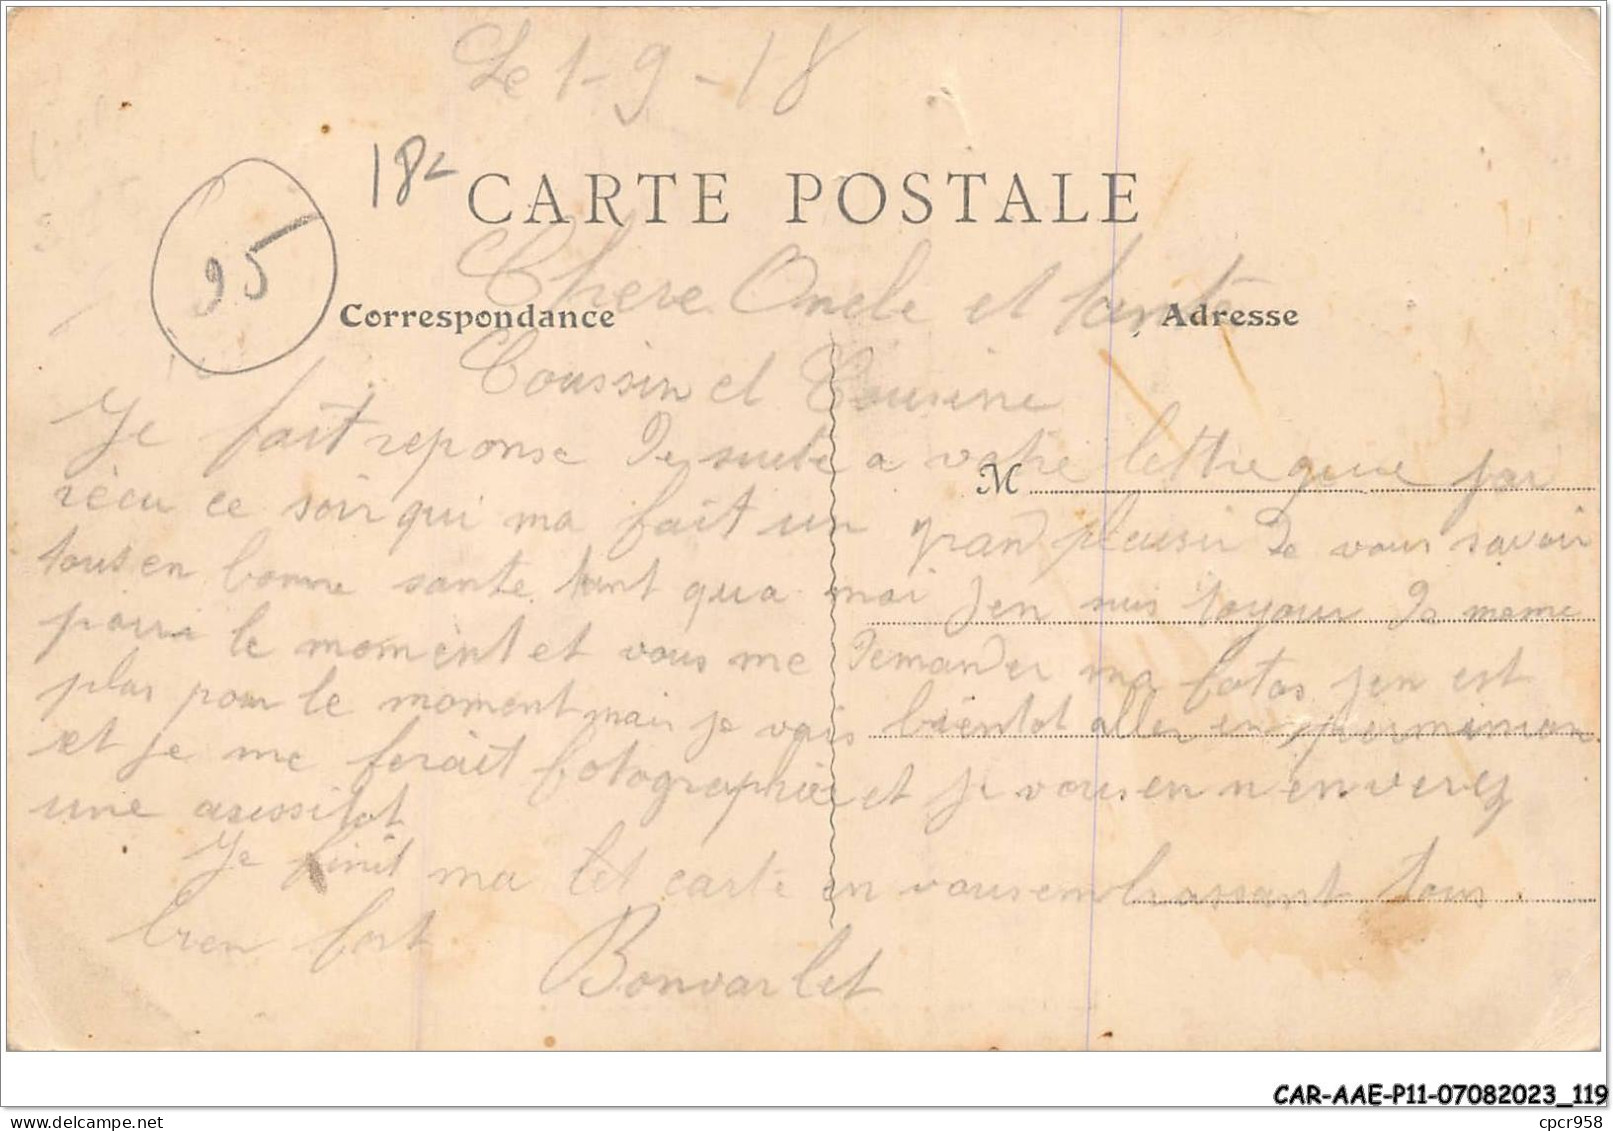 Le 1-9-18
18
CARTE POSTALE
95
Chere Oncle et tante
Correspondance
Adresse
Coussin et Cousine
Je fait reponse De suite a votre lettre que jai
M
récu ce soir qui ma fait un grand plaisir De vous savoir
tous en bonne sante tant qua moi jen suis toujour De meme
pour le moment et vous me Demander ma fotos jen est
plus pour le moment mais je vais bientot aller en perminion
et je me ferait fotographier et je vous en n'enverez
une aussitot
Je finit ma tet carte en vous embrassant tous
bien fort
Bonvarlet
CAR-AAE-P11-07082023_119
cpcr958